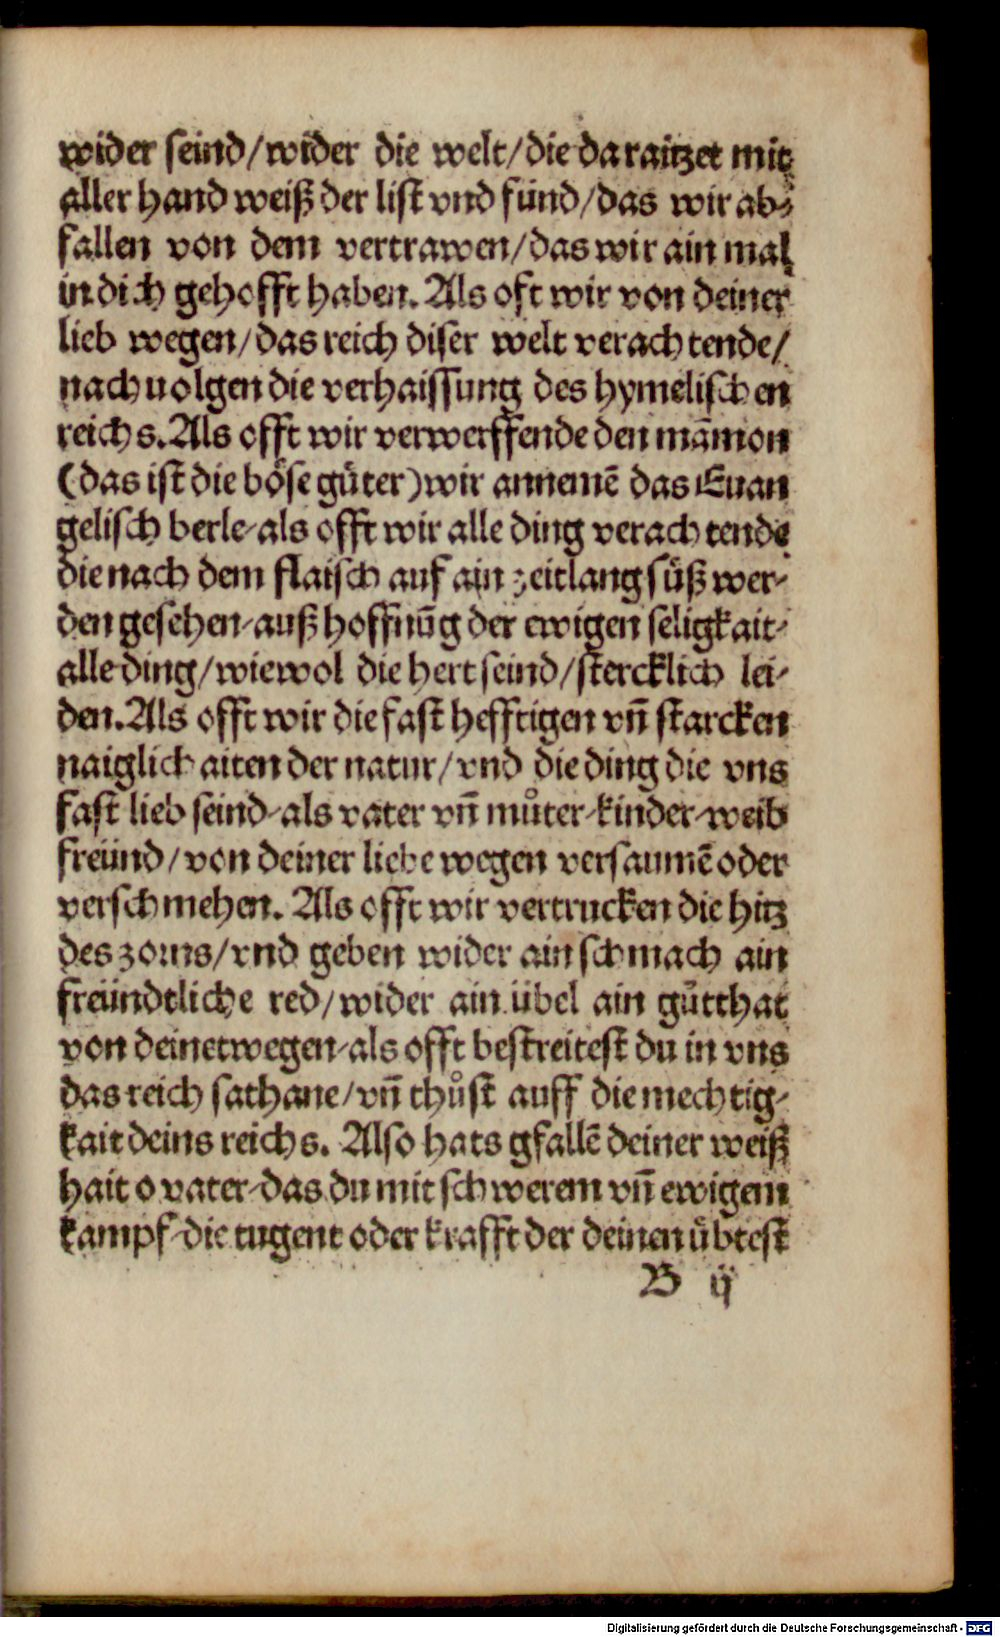 wider seind/wider die welt/die da raitzet mit
aller hand weiß der list vnd fünd/das wir ab-
fallen von dem vertrawen/das wir ain mal
in dich gehofft haben. Als oft wir von deiner
lieb wegen/das reich diser welt verachtende/
nachuolgen die verhaissung des hymelischen
reichs. Als offt wir verwerffende den mām̄on
(das ist die böse gůter) wir annemē das Euan
gelisch berle-als offt wir alle ding verachtende
die nach dem flaisch auf ain zeitlang süß wer-
den gesehen-auß hoffnūg der ewigen seligkait-
alle ding/wiewol die hert seind/stercklich lei-
den. Als offt wir die fast hefftigen vn̄ starcken
naiglichaiten der natur/vnd die ding die vns
fast lieb seind-als vater vn̄ můter-kinder-weib
freünd/von deiner liebe wegen versaumē oder
verschmehen. Als offt wir vertrucken die hitz
des zorns/vnd geben wider ain schmach ain
freündtliche red/wider ain übel ain gůtthat
von deinetwegen-als offt bestreitest du in vns
das reich sathane/vn̄ thůst auff die mechtig-
kait deins reichs. Also hats gfallē deiner weiß
hait o vater-das du mit schwerem vn̄ ewigem
kampf-die tugent oder krafft der deinen übtest
B ij
Digitalisierung gefördert durch die Deutsche Forschungsgemeinschaft - DFG